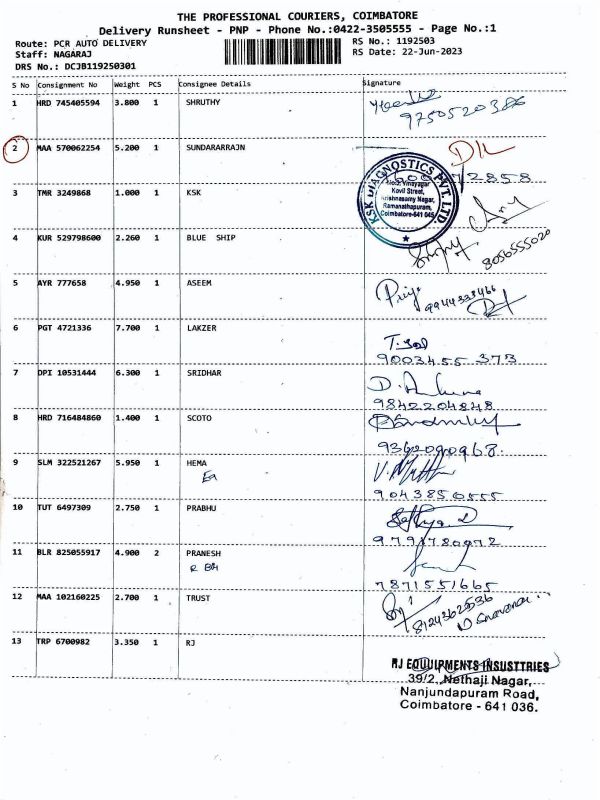 THE PROFESSIONAL COURIERS, COIMBATORE
Delivery Runsheet - PNP - Phone No.:0422-3505555 - Page No.:1
Route: PCR AUTO DELIVERY
RS No.: 1192503
Staff: NAGARAJ
RS Date: 22-Jun-2023
DRS No.: DCJB119250301
S No Consignment No Weight PCS Consignee Details Signature
1 HRD 745405594 3.800 1 SHRUTHY
9750520386
2 MAA 570062254 5.200 1 SUNDARARRAJN
3 TMR 3249868 1.000 1 KSK
KSK DIAGNOSTICS PVT. LTD.
Vinayagar
Kovil Street,
Krishnasamy Nagar,
Ramanathapuram,
Coimbatore-641 045.
4 KUR 529798600 2.260 1 BLUE SHIP
8056555020
5 AYR 777658 4.950 1 ASEEM
Priya
6 PGT 4721336 7.700 1 LAKZER
9003455 373
7 DPI 10531444 6.300 1 SRIDHAR
9842204848
8 HRD 716484860 1.400 1 SCOTO
9 SLM 322521267 5.950 1 HEMA
9043850555
10 TUT 6497309 2.750 1 PRABHU
9791780972
11 BLR 825055917 4.900 2 PRANESH
7871551665
12 MAA 102160225 2.700 1 TRUST
13 TRP 6700982 3.350 1 RJ
RJ EQUUIPMENTS INSUSTTRIES
39/2, Nethaji Nagar,
Nanjundapuram Road,
Coimbatore - 641 036.